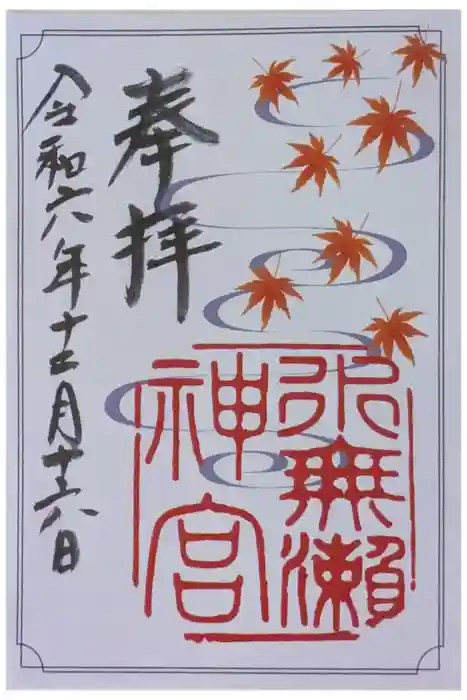 奉拝
水無瀬
神宮
令和六年十一月十六日